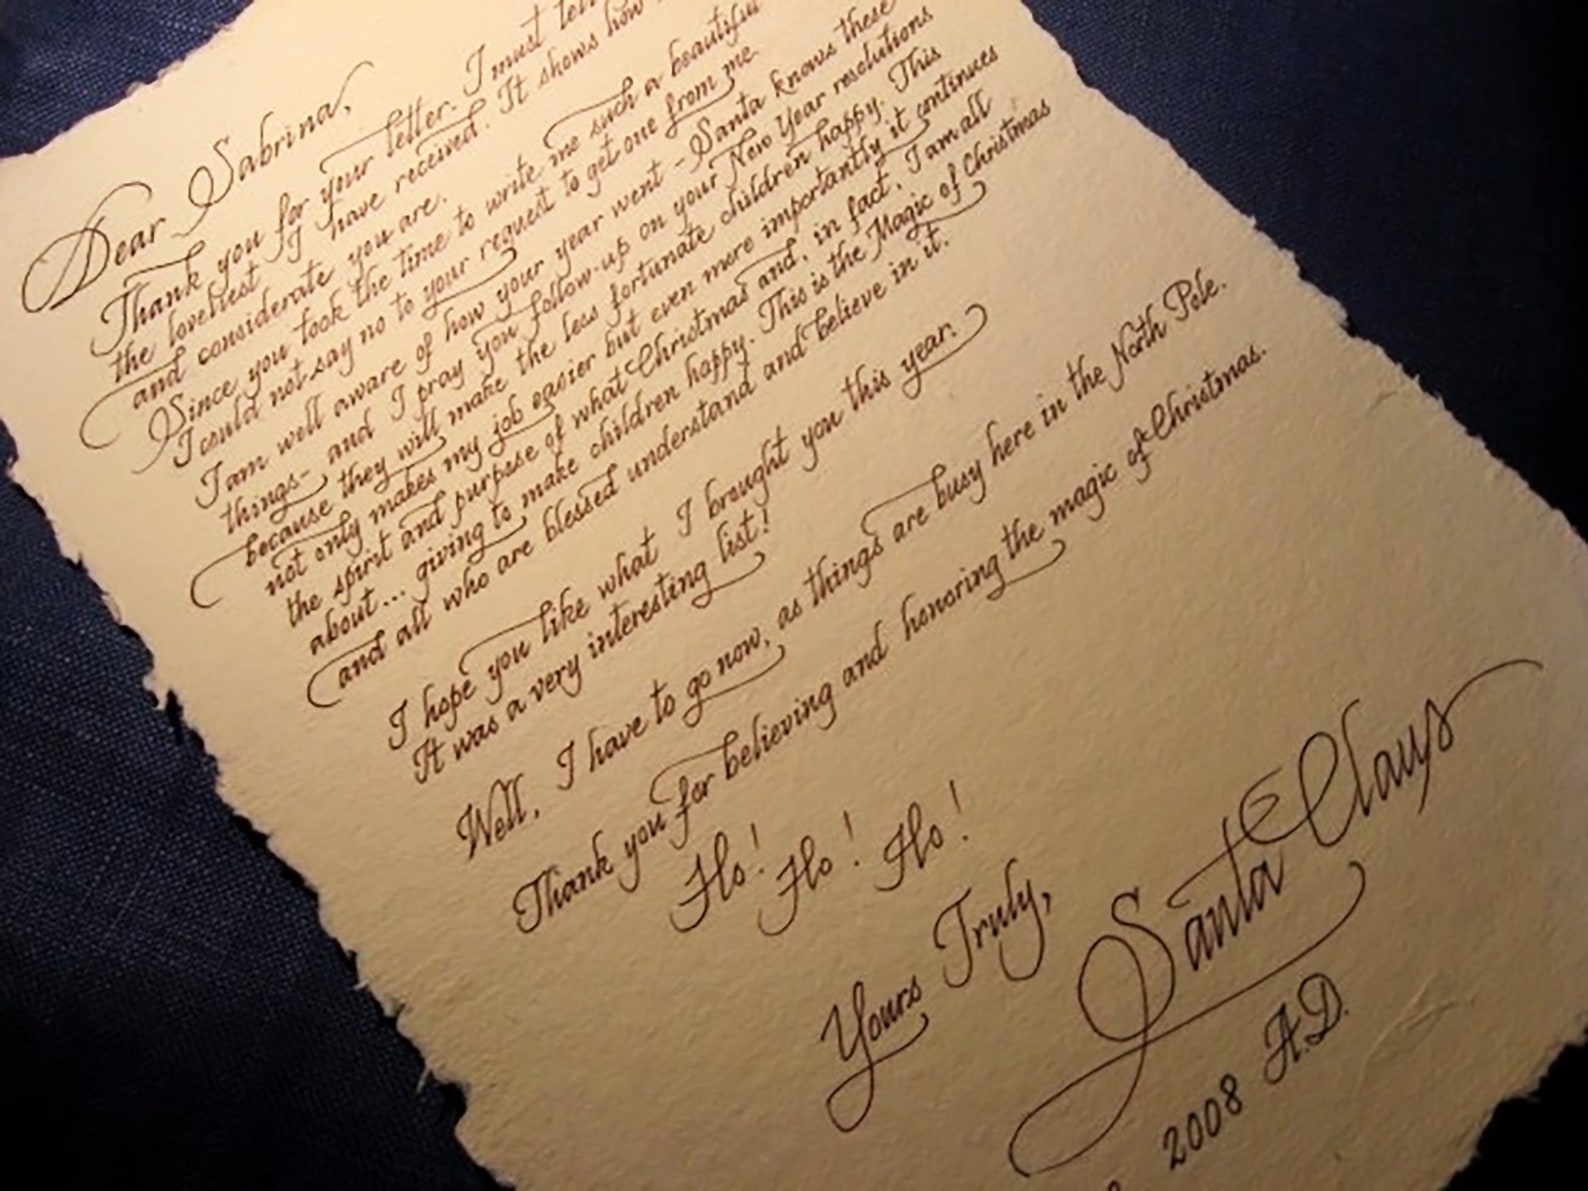 Dear Sabrina,
Thank you for your letter. I must tell
the loveliest I have received. It shows how
and considerate you are.
Since you took the time to write me such a beautiful
I could not say no to your request to get one from me
I am well aware of how your year went - Santa knows these
things- and I pray you follow-up on your New Year resolutions
because they will make the less fortunate children happy. This
not only makes my job easier but even more importantly it continues
the spirit and purpose of what Christmas and, in fact, I am all
about... giving to make children happy. This is the Magic of Christmas
and all who are blessed understand and believe in it.
I hope you like what I brought you this year.
It was a very interesting list!
Well, I have to go now, as things are busy here in the North Pole.
Thank you for believing and honoring the magic of Christmas.
Ho! Ho! Ho!
Yours Truly,
Santa Claus
2008 A.D.